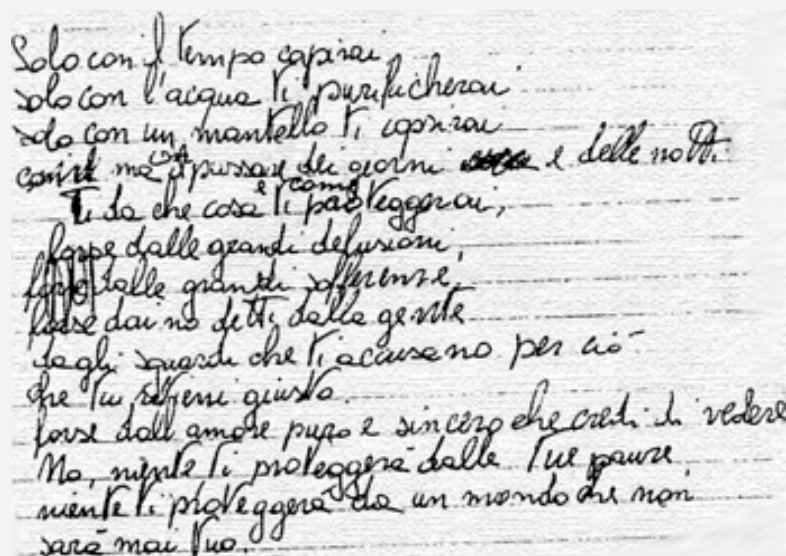 Solo con il tempo capirai
solo con l'acqua ti purificherai
solo con un mantello ti coprirai
ma passare dei giorni e delle notti.
Ti da che cosa e come ti proteggerai,
forse dalle grandi delusioni,
forse dalle grandi sofferenze,
forse dai no detti dalla gente
dagli sguardi che ti accusano per ciò
che tu ritieni giusto.
forse dall'amore puro e sincero che credi di vedere
No, niente ti proteggerà dalle tue paure,
niente ti proteggerà da un mondo che non
sarà mai tuo.